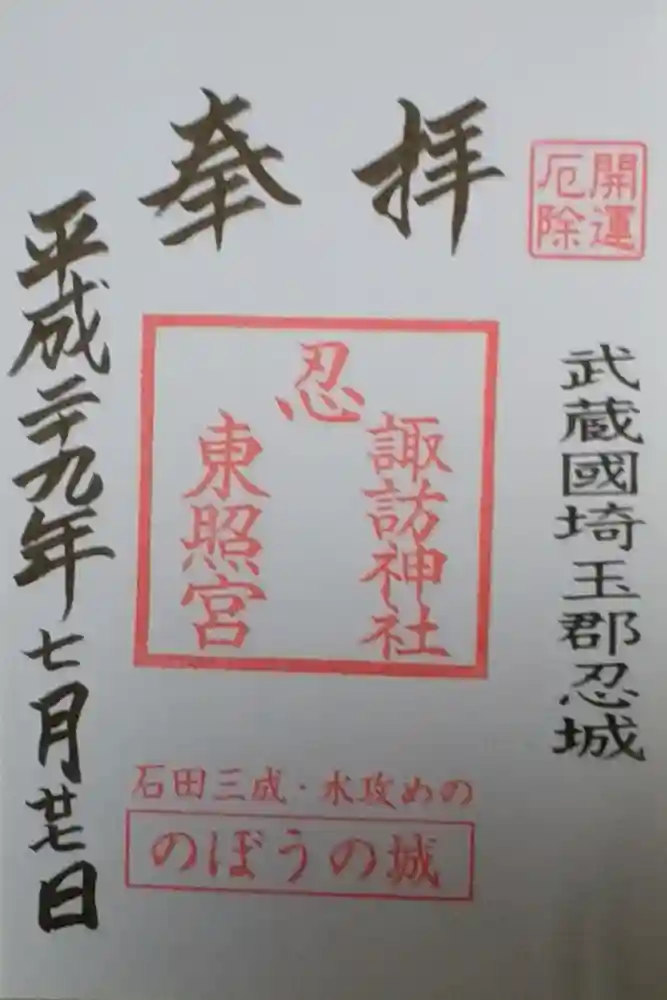 奉拝
開運
厄除
武蔵國埼玉郡忍城
忍
諏訪神社
東照宮
石田三成・水攻めの
のぼうの城
平成二十九年七月廿七日